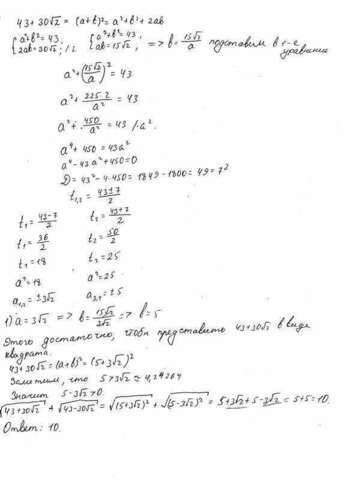 43+30√2 = (a+b)² = a²+b²+2ab
{a²+b²=43, {a²+b²=43,
{2ab=30√2; /:2 {ab=15√2, => b=15√2/a подставим в 1-е уравнение
a²+(15√2/a)²=43
a²+225·2/a²=43
a²+450/a²=43 /·a²
a⁴+450=43a²
a⁴-43a²+450=0
D=43²-4·450=1849-1800=49=7²
t₁,₂=43±7/2
t₁=43-7/2 t₂=43+7/2
t₁=36/2 t₂=50/2
t₁=18 t₂=25
a²=18 a²=25
a₁,₂=±3√2 a₂,₁=±5
1) a=3√2 => b=15√2/3√2 => b=5
Этого достаточно, чтобы представить 43+30√2 в виде
квадрата.
43+30√2=(a+b)²=(5+3√2)²
Заметим, что 5>3√2≈4,24264
Значит 5-3√2>0.
√43+30√2 + √43-30√2 = √(5+3√2)² + √(5-3√2)² = 5+3√2+5-3√2 = 5+5=10.
Ответ: 10.